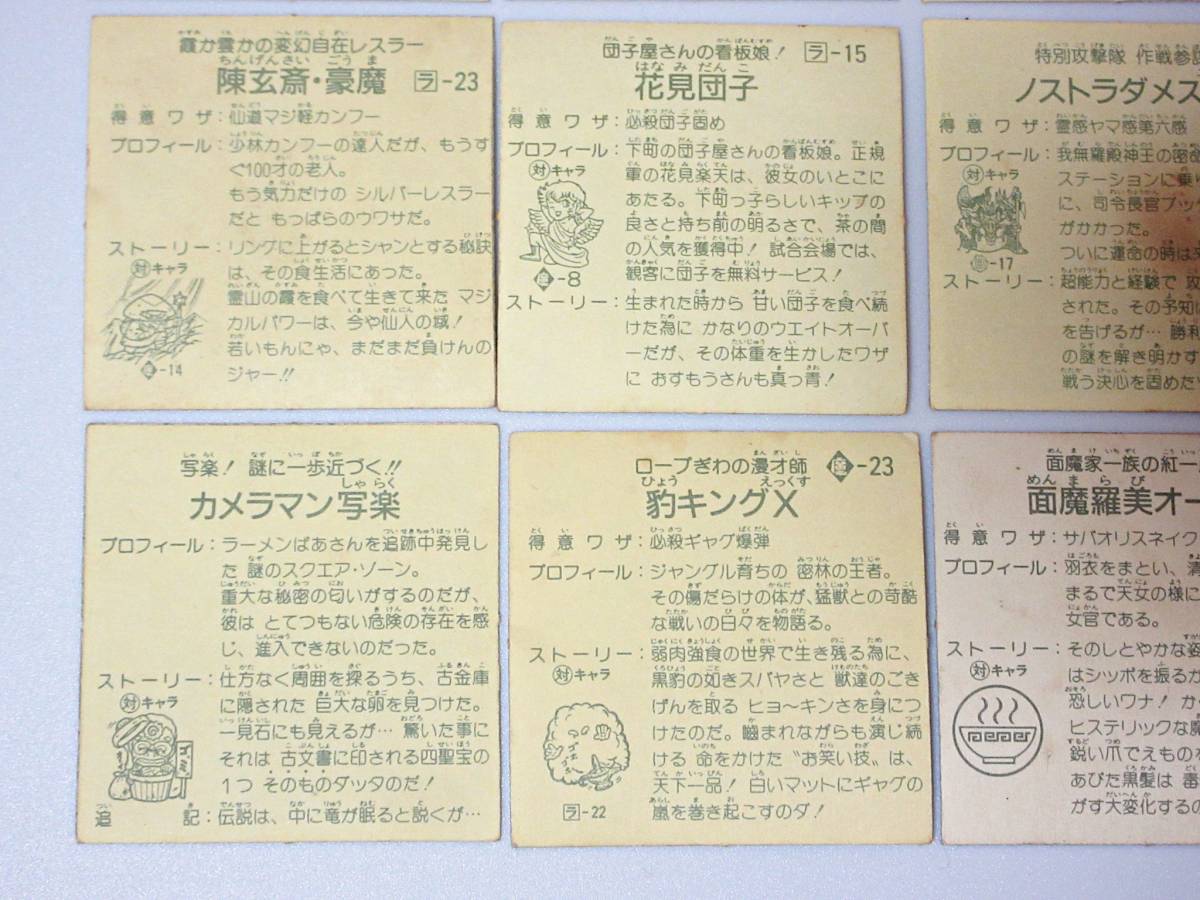 霞か雲かの変幻自在レスラー
陳玄斎・豪魔 ラ-23
得意ワザ:仙道マジ軽カンフー
プロフィール:少林カンフーの達人だが、もうす
ぐ100才の老人。
もう気力だけの シルバーレスラー
だと もっぱらのウワサだ。
ストーリー:リングに上がるとシャンとする秘訣
は、その食生活にあった。
霊山の霞を食べて生きて来た マジ
カルパワーは、今や仙人の域!
若いもんにゃ、まだまだ負けんの
ジャー!!
対キャラ
-14
団子屋さんの看板娘! ラ-15
花見団子
得意ワザ:必殺団子固め
プロフィール:下町の団子屋さんの看板娘。正規
軍の花見楽天は、彼女のいとこに
あたる。下町っ子らしいキップの
良さと持ち前の明るさで、茶の間
の人気を獲得中! 試合会場では、
観客に団子を無料サービス!
対キャラ
-8
ストーリー:生まれた時から 甘い団子を食べ続
けた為に かなりのウエイトオーバ
ーだが、その体重を生かしたワザ
に おすもうさんも真っ青!
特別攻撃隊 作戦参謀
ノストラダメス
得意ワザ:霊感ヤマ感第六感
プロフィール:我無羅殿神王の密命
ステーションに乗り
に、司令長官ブッ
がかかった。
ついに運命の時は
対キャラ
-17
ストーリー:超能力と経験で 攻
された。その予知
を告げるが… 勝利
の謎を解き明かす
戦う決心を固めた
写楽! 謎に一歩近づく!!
カメラマン写楽
プロフィール:ラーメンばあさんを追跡中発見し
た 謎のスクエア・ゾーン。
重大な秘密の匂いがするのだが、
彼は とてつもない危険の存在を感
じ、進入できないのだった。
ストーリー:仕方なく周囲を探るうち、古金庫
に隠された 巨大な卵を見つけた。
一見石にも見えるが… 驚いた事に
それは 古文書に印される四聖宝の
1つ そのものダッタのだ!
対キャラ
追記:伝説は、中に竜が眠ると説くが…
ロープぎわの漫才師 -23
豹キングX
得意ワザ:必殺ギャグ爆弾
プロフィール:ジャングル育ちの 密林の王者。
その傷だらけの体が、猛獣との苛酷
な戦いの日々を物語る。
ストーリー:弱肉強食の世界で生き残る為に、
黒豹の如きスバヤさと 獣達のごき
げんを取る ヒヨーキンさを身につ
けたのだ。噛まれながらも演じ続
ける 命をかけた“お笑い技”は、
天下一品! 白いマットにギャグの
嵐を巻き起こすのダ!
対キャラ
ラ-22
面魔家一族の紅一
面魔羅美オー
得意ワザ:サバオリスネイク
プロフィール:羽衣をまとい、清
まるで天女の様に
女官である。
ストーリー:そのしとやかな姿
はシッポを振るが
恐しいワナ! か
ヒステリックな魔
鋭い爪でえものを
あびた黒髪は 蕃
がす大変化するの
対キャラ